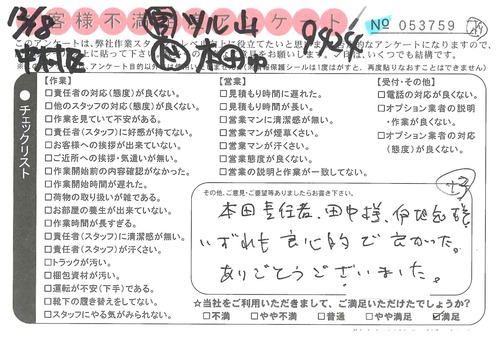 12/8
お客様不満足アンケート
営 ツル山
9424
№ 053759
中村区
本田
このアンケートは、弊社作業スタッフの
【作業】
□責任者の対応(態度)が良くない。
□他のスタッフの対応(態度)が良くない。
□作業を見ていて不安がある。
□責任者(スタッフ)に好感が持てない。
□お客様への挨拶が出来ていない。
□ご近所への挨拶・気遣いが無い。
□作業開始前の内容確認がなかった。
□作業開始時間が遅れた。
□荷物の取り扱いが雑である。
□お部屋の養生が出来ていない。
□作業時間が長すぎる。
□責任者(スタッフ)に清潔感が無い。
□責任者(スタッフ)が汗くさい。
□トラックが汚い。
□梱包資材が汚い。
□運転が不安(下手)である。
□靴下の履き替えをしてない。
□スタッフにやる気がみられない。
【営業】
□見積もり時間に遅れた。
□見積もり時間が長い。
□営業マンに清潔感が無い。
□営業マンが煙草くさい。
□営業マンが汗くさい。
□営業態度が良くない。
□営業の説明と作業が一致してない。
【受付・その他】
□電話の対応が良くない。
□オプション業者の説明
・作業が良くない。
□オプション業者の対応
(態度)が良くない。
●チェックリスト
その他、ご意見・ご要望等ありましたらお書き下さい。
+3
本田責任者、田中様、
いずれも良心的で良かった。
ありがとうございました。
☆当社をご利用いただきまして、ご満足いただけたでしょうか?
□不満 □やや不満 □普通 □やや満足 ☑満足